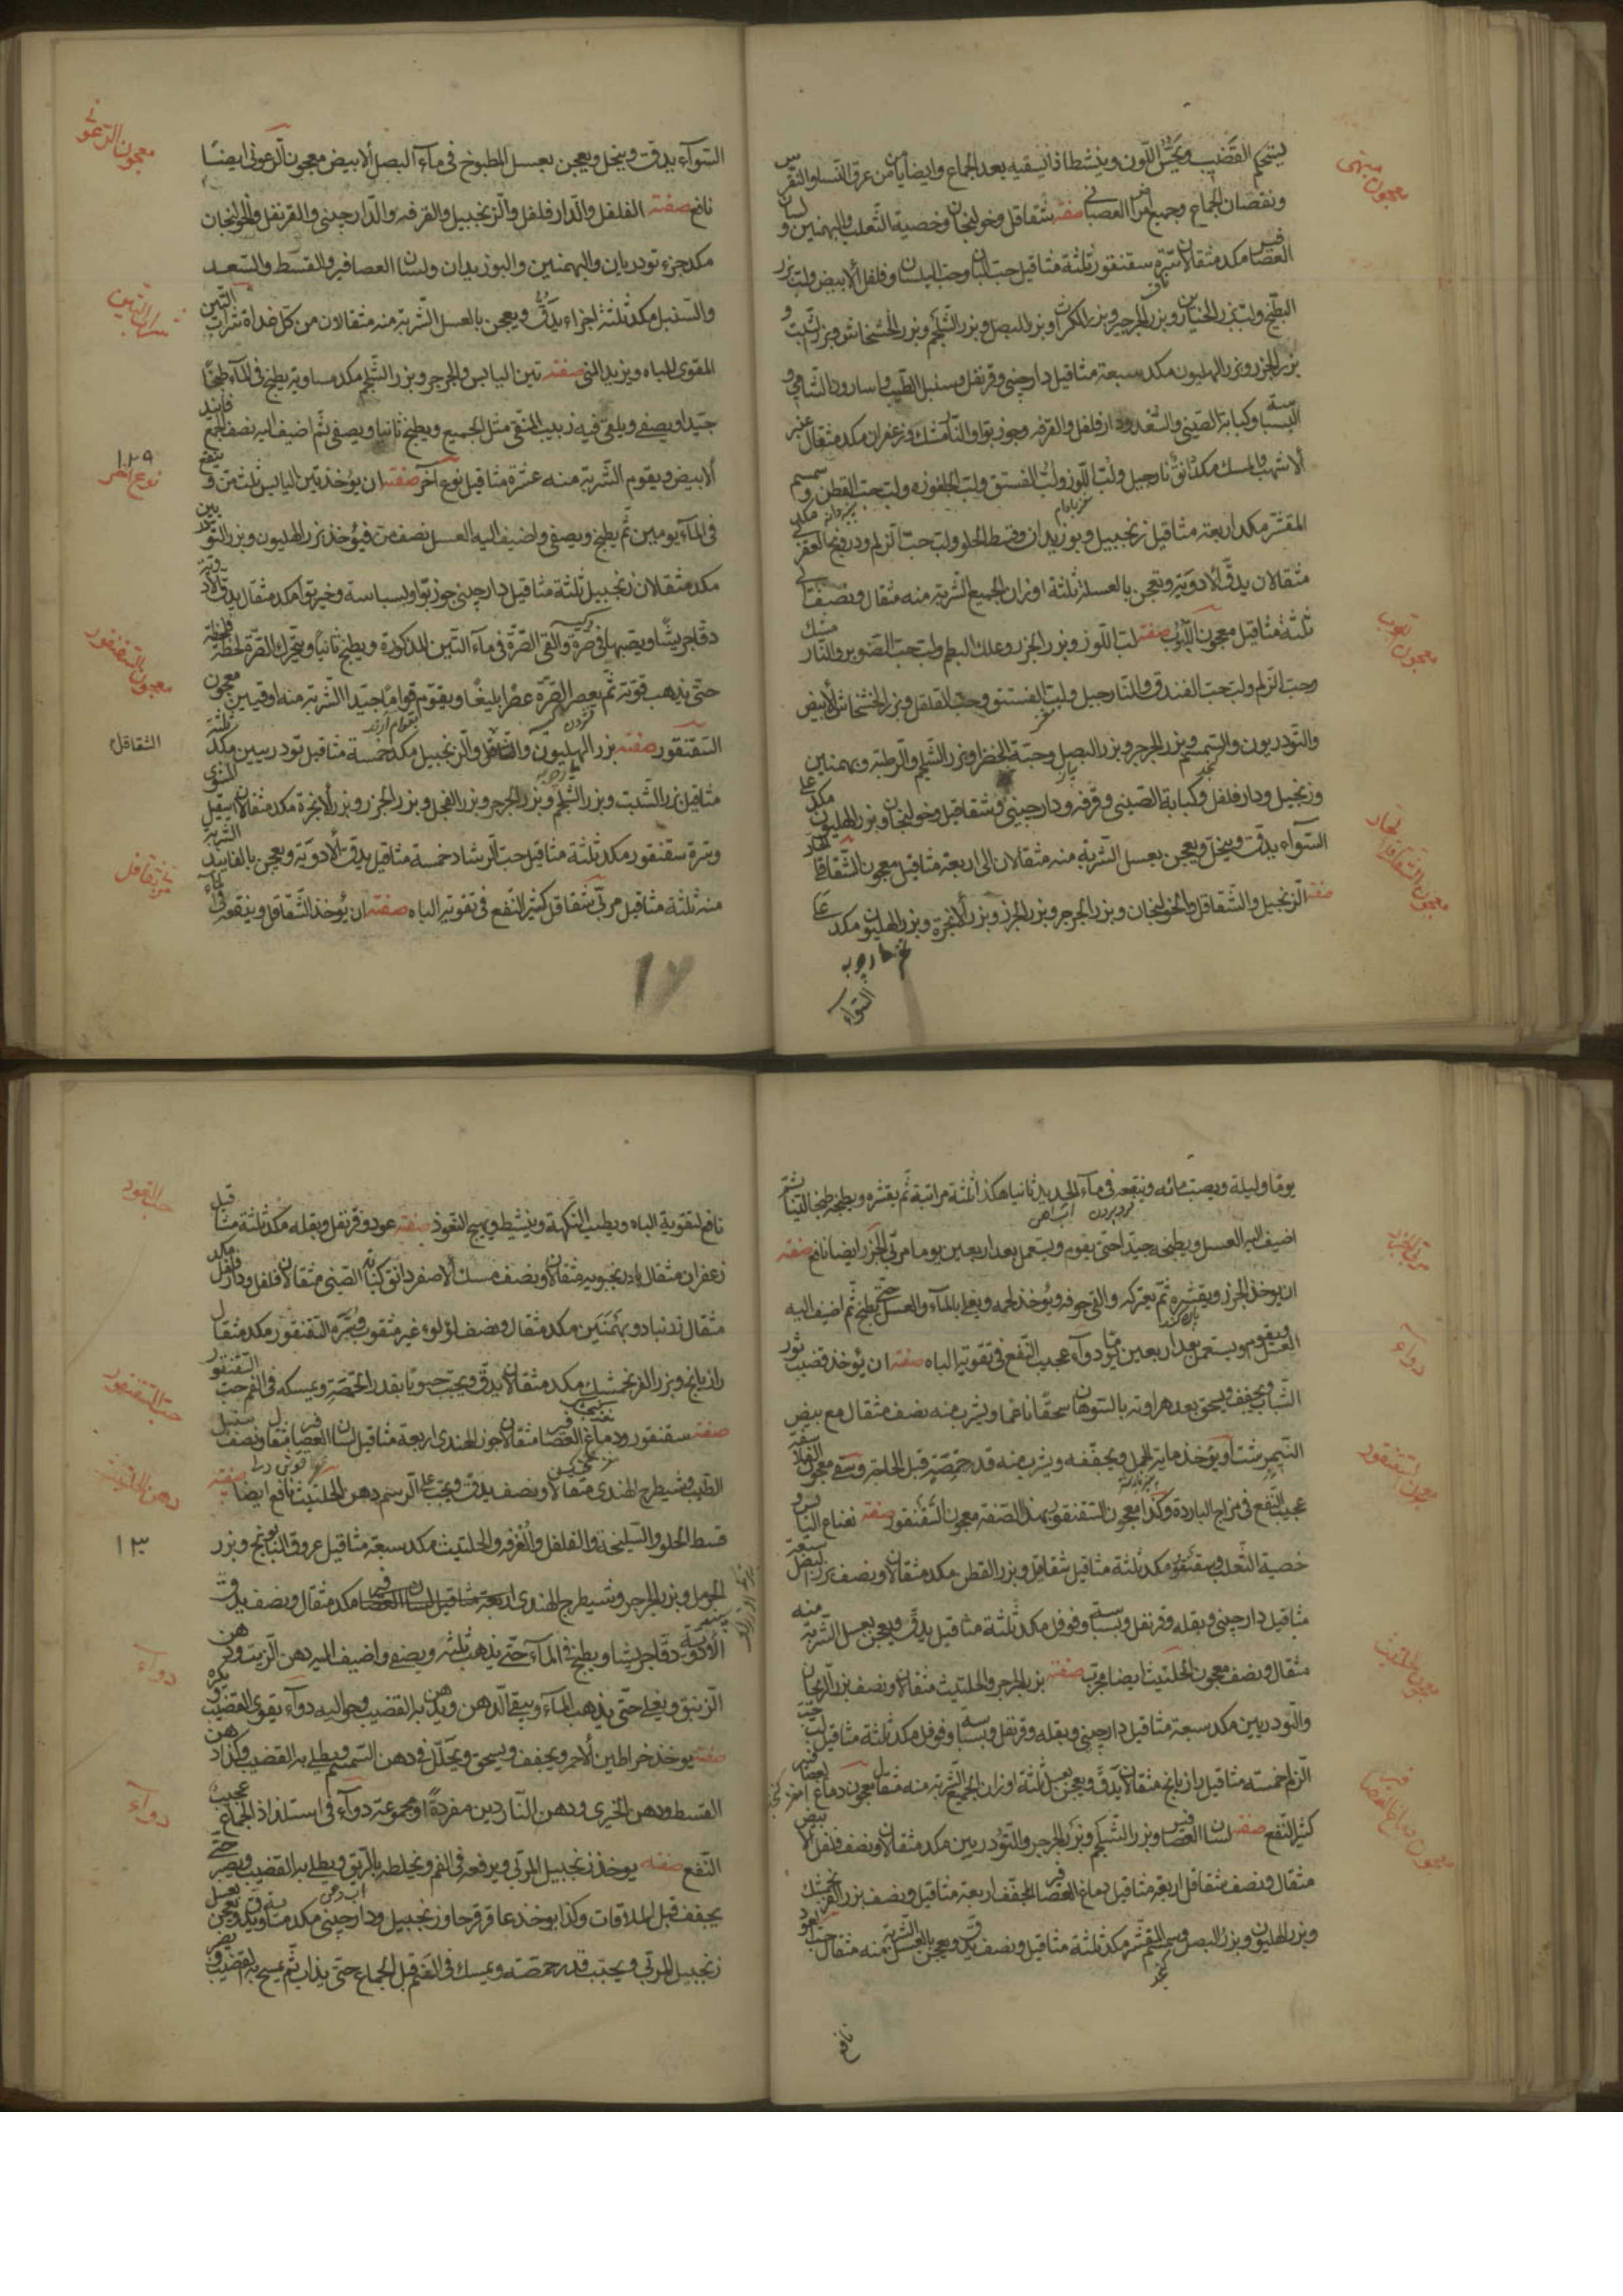 يستحكم القضيب ويحسّن اللّون وينشط اذا يسقيه بعد الجماع وايضا يأمن من عرق النسا والنقرس
ونقصان الجماع وجميع امراض العصبانى صفته شقاقل وخولنجان وخصية الثّعلب والبهمنين ولسان
العصافير مكد مثقالان سرّة سقنقور ثلثة مثاقيل حبّ البان وحبّ البلسان وفلفل الأبيض ولبّ بزر
البطّيخ ولبّ بزر الخيارين وبزر الجرجير وبزر الكرّاث وبزر البصل وبزر الشّلجم وبزر الخشخاش وبزر الشّبت و
بزر الجزر وبزر الهليون مكد سبعة مثاقيل دارچينى وقرنفل وسنبل الطّيب واسارون الشّامى و
البسباسة وكبابة الصّينى والسّعد ودار فلفل والقرفه وجوز بوّا والنّارمشك وزعفران مكد مثقال عنبر
الأشهب والمسك مكد دانق نارجيل ولبّ اللّوز ولبّ الفستق ولبّ الجلغوزه ولبّ حبّ القطن وسمسم
المقشّر مكد اربعة مثاقيل زنجبيل وبوزيدان وقسط الحلو ولبّ حبّ الزّلم ودرونج العقربى مكد
مثقالان يدقّ الأدوية ويعجن بالعسل ثلثة اوزان الجميع الشّربة منه مثقال ونصف الى
ثلثة مثاقيل معجون اللّبوب صفته لبّ اللّوز وبزر الجزر وعلك البطم ولبّ حبّ الصّنوبر والنّارمشك
وحبّ الزّلم ولبّ حبّ الفندق والنّارجيل ولبّ الفستق وحبّ القلقل وبزر الخشخاش الأبيض
والتّودريون والسّمسم وبزر الجرجر وبزر البصل وحبّة الخضرا وبزر الشّلجم والرّطبة وبهمنين
وزنجبيل ودار فلفل وكبابة الصّينى وقرفه ودارچينى وشقاقل وخولنجان وبزر الهليون مكد على
السّوآء يدقّ وينخل ويعجن بعسل الشّربة منه مثقالان الى اربعة مثاقيل معجون الشّقاقل الحارّ
صفته الزّنجبيل والشّقاقل والخولنجان وبزر الجرجر وبزر الجزر وبزر الأنجرة وبزر الهليون مكد على
السّوآء
معجون اللبوب
معجون الشّقاقل الحار
السّوآء يدقّ وينخل ويعجن بعسل المطبوخ فى مآء البصل الأبيض معجون الزّعونى ايضًا
نافع صفته الفلفل والدّار فلفل والزّنجبيل والقرفه والدّارچينى والقرنفل والخولنجان
مكد جزء تودريان والبهمنين والبوزيدان ولسان العصافير والقسط والسّعد
والسّنبل مكد ثلثة اجزاء يدقّ ويعجن بالعسل الشّربة منه مثقالان من كلّ غداة شراب التّين
المقوى للباه ويزيد المنى صفته تين اليابس والجرجر وبزر الشّلجم مكد مساوية يطبخ فى المآء طبخًا
جيّدا ويصفى ويلقى فيه زبيب المنقّى مثل الجميع ويطبخ ثانيا ويصفى ثمّ اضيف اليه نصف الجميع فانيد
الأبيض ويقوم الشّربة منه عشرة مثاقيل نوع آخر صفته ان يؤخذ تين اليابس ثلث من وينقع
فى المآء يومين ثمّ يطبخ ويصفى واضيف اليه العسل نصف من فيؤخذ بزر الهليون وبزر التودريين
مكد مثقلان زنجبيل ثلثة مثاقيل دارچينى جوز بوّا وبسباسة وخير بوّا مكد مثقال يدقّ الأدوية
دقّا جريشًا ويصبها فى صرّة والقى الصّرّة فى مآء التّين المذكورة ويطبخ ثانيًا ويحرّك الصّرّة لحظة فلحظة
حتّى يذهب قوّته ثمّ يعصر الصّرّة عصرًا بليغًا ويقوّم قوامًا جيّدا الشّربة منه اوقيتين معجون
السّقنقور صفته بزر الهليون والشّقاقل والزّنجبيل مكد خمسة مثاقيل تودريين مكد ثلثة
مثاقيل بزر الشّبت وبزر الشّلجم وبزر الجرجر وبزر الفجل وبزر الجزر وبزر الأنجرة مكد مثقالان اشقيل المشوى
وسرة سقنقور مكد ثلثة مثاقيل حبّ الرّشاد خمسة مثاقيل يدقّ الأدوية ويعجن بالفانيد الشّربة
منه ثلثة مثاقيل مربّى شقاقل كثير النّفع فى تقويه الباه صفته ان يؤخذ الشّقاقل وينقعه فى المآء
معجون الزّعونى
شراب التين
١٢٩
نوع آخر
معجون السّقنقور
الشقاقل
مربى شقاقل
يوما وليلة ويصبّ مائه وينقعه فى مآء الجديد ثانيا هكذا ثلثة مراتبة ثمّ يقشره ويطبخه طبخا لينًا ثمّ
اضيف اليه العسل ويطبخه جيّدا حتى يقوم ويستعمل بعد اربعين يوما مربّى الجزر ايضا نافع صفته
ان يوخذ الجزر ويقشره ثمّ يعتركه والقى جوفه ويؤخذ لحمه ويغلى بالمآء والعسل حتّى يطبخ ثمّ اضف اليه
العسل ويقوم ويستعمل بعد اربعين يومًا دوآء عجيب النّفع فى تقويه الباه صفته ان يؤخذ قضيب ثور
الشّاب ويجفف ويسحق بعد هراوته بالسّوهان سحقًا ناعما ويشرب منه نصف مثقال مع بيض
النّيمبرشت او يؤخذ ماية الجمل ويجفّفه ويشرب منه قدر حمّصة قبل الحاجة وسقى معجون الفلاسفة
عجيب النّفع فى مزاج الباردة وكذا معجون السّقنقور بهذا الصّفة معجون السّقنقور صفته نعناع اليابس و
خصية الثّعلب وسقنقور مكد ثلثة مثاقيل شقاقل وبزر القطن مكد مثقالان ونصف بزر البصل سبعة
مثاقيل دارچينى وبقله وقرنفل وبسباسة وفوفل مكد ثلثة مثاقيل يدقّ ويعجن بعسل الشّربة منه
مثقال ونصف معجون الحلتيت ايضا مجرب صفته بزر الجرجر والحلتيث مثقالان ونصف بزر الرّيحان
والتّودريين مكد سبعة مثاقيل دارچينى وبقله وقرنفل وبسباسة وفوفل مكد ثلثة مثاقيل لبّ حبّ
الزّلم خمسة مثاقيل رازيانج مثقالان يدّقّ ويعجن بعسل ثلثة اوزان الجميع الشّربة منه مثقال معجون دماغ العصافير
كثير النّفع صفته لسان العصافير وبزر الشّلجم وبزر الجرجر والتّودريين مكد مثقالان ونصف فلفل الأبيض
مثقال ونصف شقاقل اربعة مثاقيل دماغ العصافير المجفّف اربعة مثاقيل ونصف بزر الفرنجمشك
وبزر الهليون وبزر البصل وسمسم المقشّر مكد ثلثة مثاقيل ونصف يدقّ ويعجن بالعسل الشّربة منه مثقال حبّ العود
نافع
دواء
معجون السّقنقور
معجون الحلتيت
معجون دماغ العصافير
نافع لتقوية الباه ويطيب النّكهة وينشط ويهيج النّعوذ صفته عود وقرنفل وبقله مكد ثلثة مثاقيل
زعفران مثقال بادرنجبويه مثقالان ونصف مسك الأصفر دانق كبابة الصّينى مثقالان فلفل ودار فلفل مكد
مثقال زرنباد وبهمنين مكد مثقال ونصف لؤلوء غير مثقوب وسرّة السّقنقور مكد مثقال
رازيانج وبزر الفرنجمشك مكد مثقالان يدقّ ويحبّب حبوبًا بقدر الحمّصة ويمسكه فى الفم حبّ السّقنقور
صفته سقنقور ودماغ العصافير مثقالان جوز الهندى اربعة مثاقيل لسان العصافير مثقال ونصف سنبل
الطّيب وشيطرج الهندى مثقالان ونصف يدقّ ويحبّب على الرّسم دهن الحلتيث نافع ايضا صفته
قسط الحلو والسّليخة والفلفل والقرفه والحلتيث مكد سبعة مثاقيل عروق البابونج وبزر
الحرمل وبزر الجرجر وشيطرج الهندى اربعة مثاقيل لسان العصافير مكد مثقال ونصف يدقّ
الأدوية دقّا جريشا ويطبخ فى المآء حتّى يذهب ثلثه ويصفى واضيف اليه دهن الزّيت ودهن
الزّنبق ويغلى حتّى يذهب المآء ويبقى الدّهن ويدهن به القضيب وحواليه دوآء يقوى القضيب ويكبره
صفته يوخذ خراطين الأحمر ويجفف ويسحق ويحلّل فى دهن السّمسم ويطلى به القضيب وكذا دهن
القسط ودهن الخيرى ودهن النّاردين مفردةً او مجموعة دوآء فى استلذاذ الجماع عجيب
النّفع صفته يوخذ زنجبيل المربّى ويرفعه فى الفم ويخلطه بالرّيق ويطلى به القضيب ويصبر حتّى
يجفف قبل الملاقات وكذا يوخذ عاقرقرحا وزنجبيل ودارچينى مكد متساوية يدقّ ويعجن بعسل
زنجبيل المربّى ويحبّب قدر حمّصة ويمسك فى الفم قبل الجماع حتّى يذاب ثمّ يمسح به القضيب
حبّ العود
حبّ السّقنقور
دهن الحلتيت
١٣٠
دوآء
دوآء